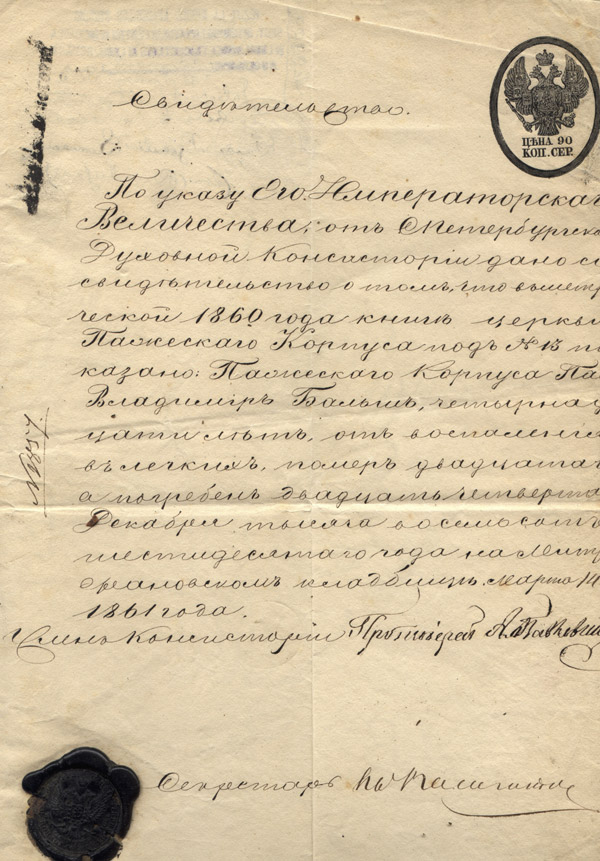 ЦѢНА 90
КОП. СЕР.
Свидѣтельство.
По указу Его Императорска
Величества, отъ СПетербургско
Духовной Консисторіи дано с
свидѣтельство о томъ, что въ метр
ческой 1860 года книгѣ церкви
Пажескаго Корпуса подъ № 13 по
казано: Пажескаго Корпуса Па
Владиміръ Балшъ, четырнад
цати лѣтъ, отъ воспаленія
въ легкихъ, померъ двадцатаг
а погребенъ двадцать четверта
Декабря тысяча восемьсотъ
шестидесятаго года на Митр
офановскомъ кладбищѣ. Марта 14
1861 года.
Членъ Консисторіи Протоіерей А.
Секретарь